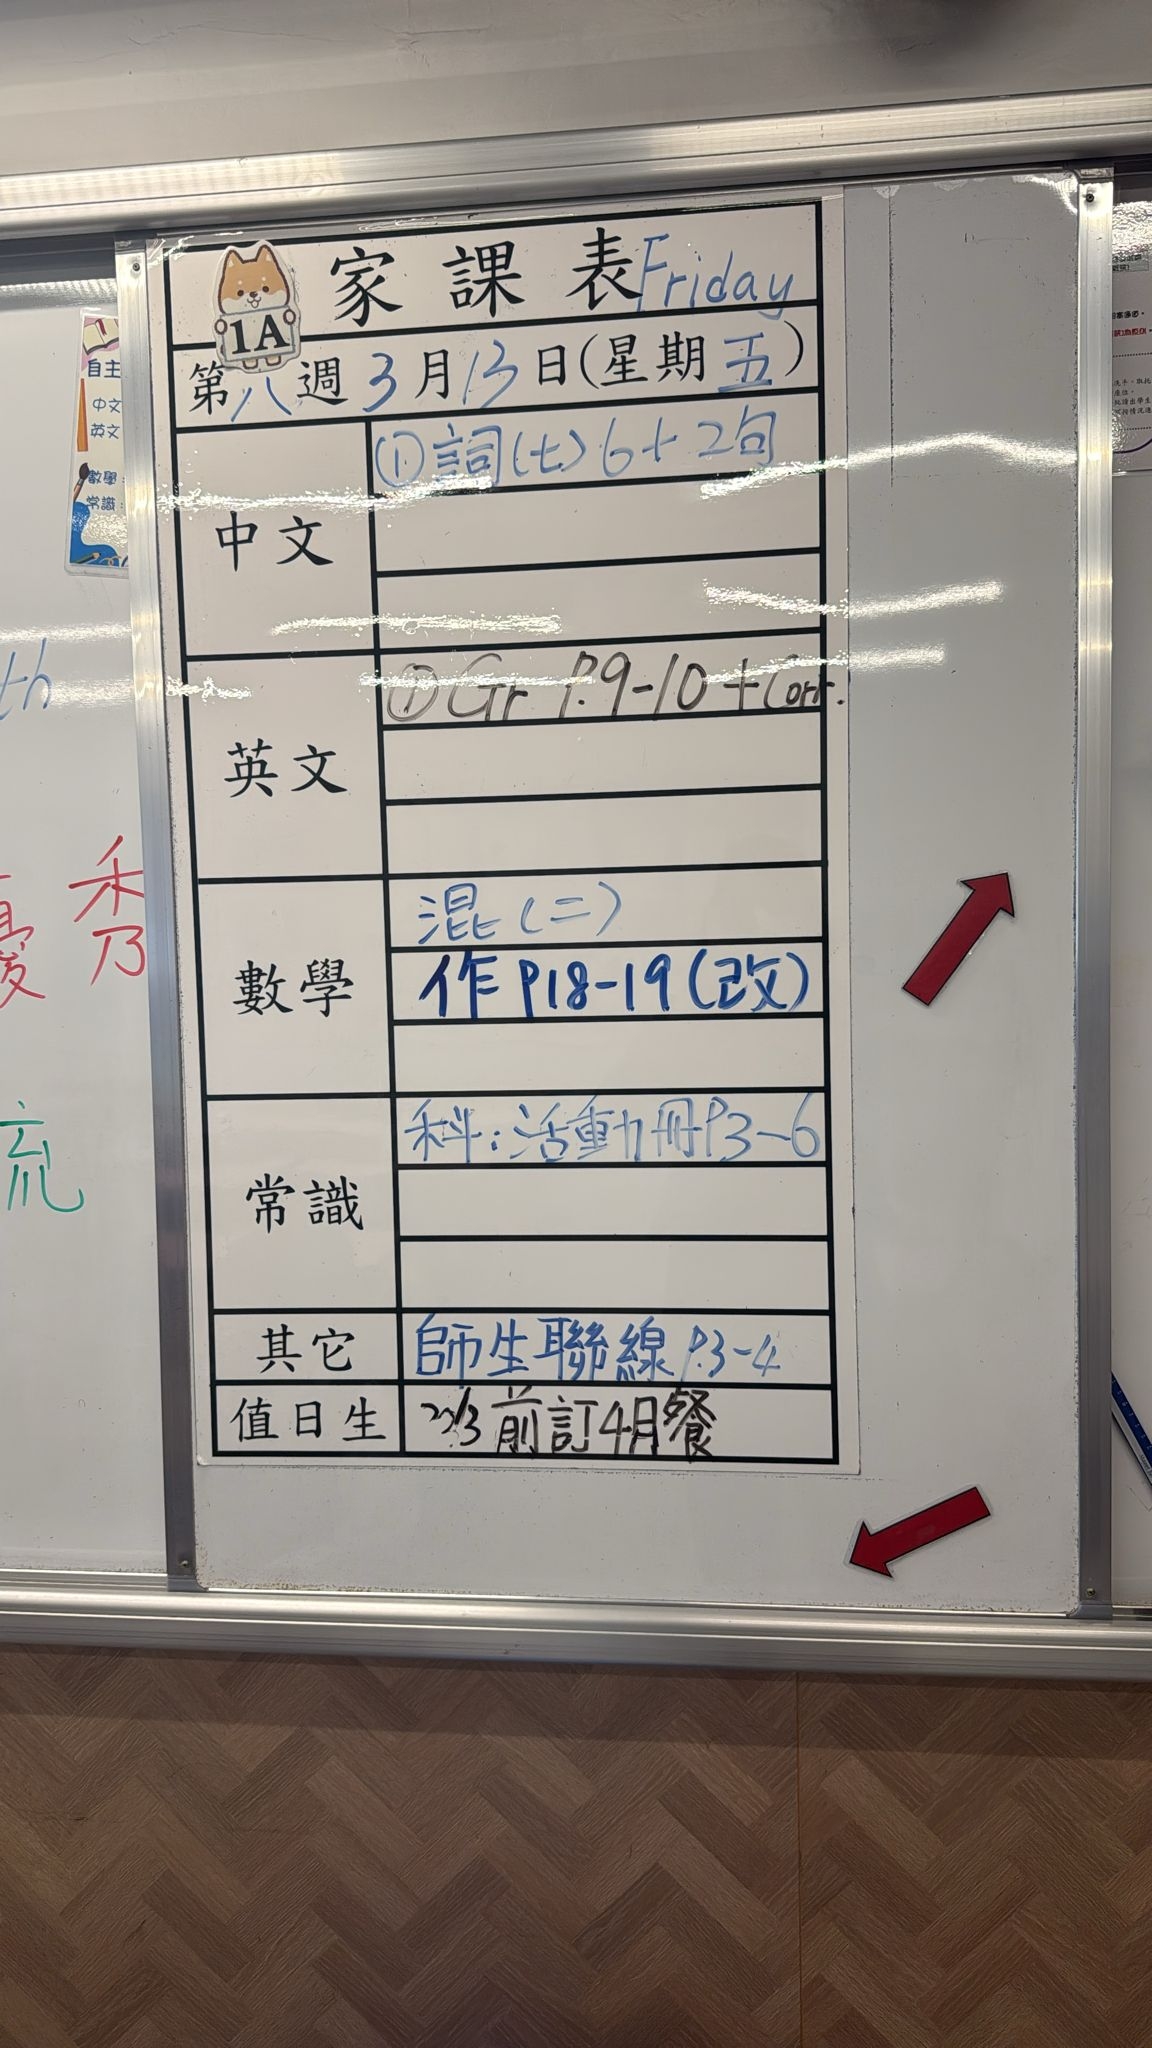 家課表 Friday
1A
第八週 3月13日(星期五)
中文
① 詞(七) 6+2句
英文
① Gr P.9-10 + Corr.
數學
混(二)
作 P18-19(改)
常識
科:活動冊P3-6
其它
師生聯線 P.3-4
值日生
前訂4月餐
自主
中文
英文
數學:
常識:
th
優秀
流